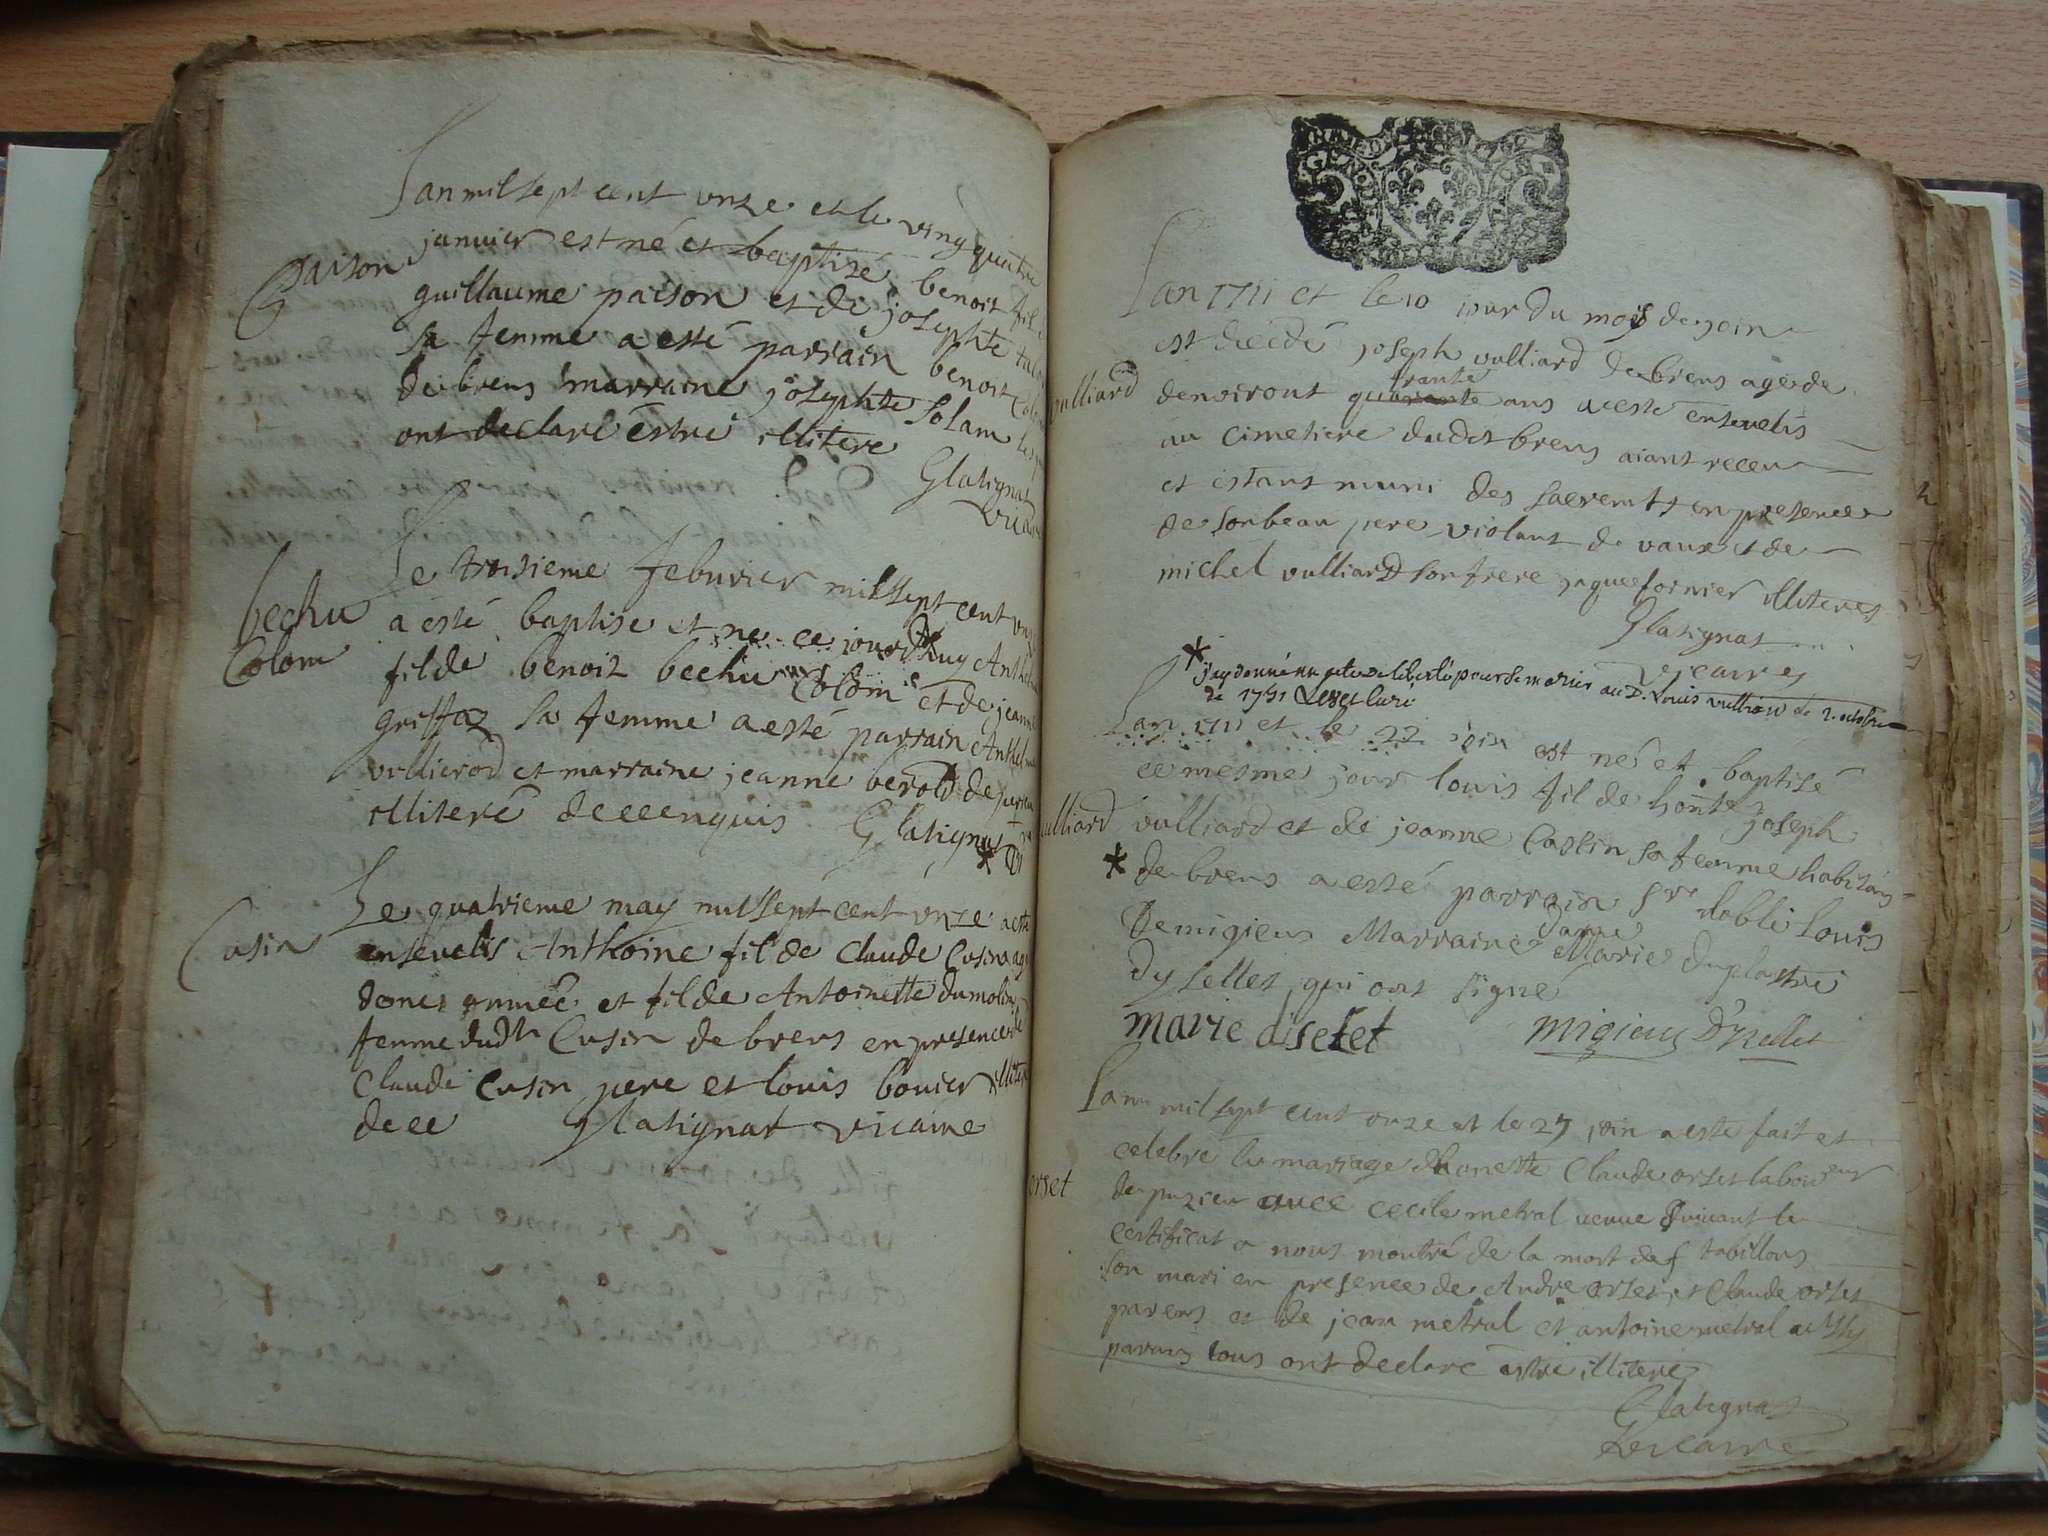 Lan mil sept cent vnze et le ving quatre
janvier est né et baptisé benoit fil
Paison
guillaume paison et de josephte
sa femme a esté parrain benoit
de brens marraine josephte Solam
ont declaré estre illitere
Glatignat
vicaire
Le troisieme febuvrier mil sept cent vnze
bechu
a esté baptise et ne ce jourdhuy Anthelme
Colom
fil de benoit bechu Colom et de jeanne
griffaz sa femme a esté parrain Anthelme
vullierod et marraine jeanne berod de
illiteré de ce enquis Glatignat
*
Le quatrieme may mil sept cent vnze a esté
Cusin
ensevelis Anthoine fil de Claude Cusin agé
donez année et fil de Antoinette dumolin
femme dudt Cusin de brens en presence de
Claude Cusin pere et louis bouier illiteré
de ce Glatignat vicaire
Lan 1711 et le 10 jour du mois de join
est decedé joseph vulliard de brens agé de
vulliard
trante
denviront quarante ans a esté ensevelis
au cimetiere dudt brens aiant receu
et estant muni des sacremts en presence
de son beau pere violant de vaux et de
michel vulliard son frere jaque fornier illiteres
Glatignat
vicaire
* J'ay donné un acte de liberté pour se marier au D. Louis vulliard le 2. octobre
de 1751 curé
Lan 1711 et le 22 join est né et baptisé
ce mesme jour louis fil de honte joseph
vulliard
vulliard et de jeanne Castin sa femme habitans
* de brens a esté parrain Sr noble louis
Dame
Demigieux Marraine Marie duplastre
Dyselles qui ont signé
marie diselet
migieu D'yzellet
Lan mil sept cent onze et le 27 join a esté fait et
celebré le mariage dhonette Claude orset laboureur
orset
de puzieu avec cecile metral veuve suivant le
certificat a nous montré de la mort de f tabillons
son mari en presence de Andre orset et Claude orset
parens et de jean metral et antoine metral aussy
parens tous ont declaré estre illiteres
Glatignat
vicaire